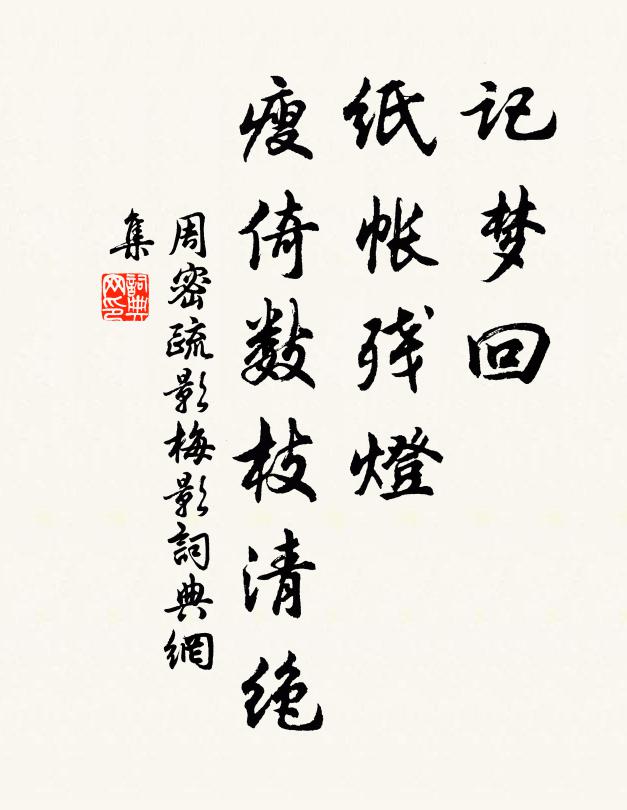 记梦回
纸帐残燈
瘦倚数枝清绝
周密疏影梅影詞典網
集
詞典网印